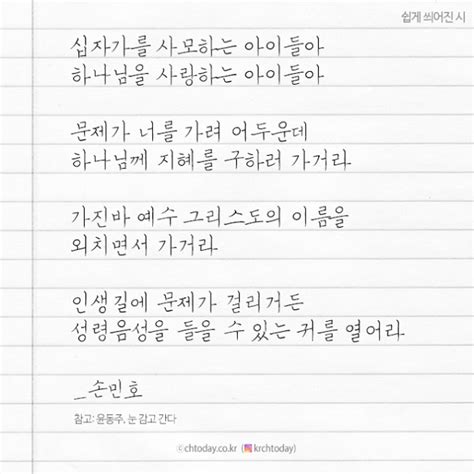 쉽게 씌어진 시
십자가를 사모하는 아이들아
하나님을 사랑하는 아이들아
문제가 너를 가려 어두운데
하나님께 지혜를 구하러 가거라
가진바 예수 그리스도의 이름을
외치면서 가거라
인생길에 문제가 걸리거든
성령음성을 들을 수 있는 귀를 열어라
_손민호
참고: 윤동주, 눈 감고 간다
©chtoday.co.kr (krchtoday)